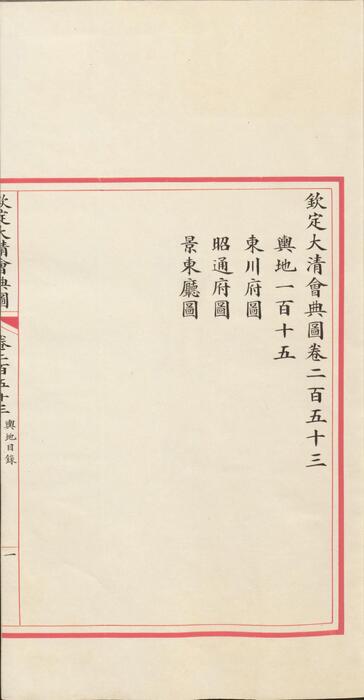 欽定大清會典圖卷二百五十三
輿地一百十五
東川府圖
昭通府圖
景東廳圖
欽定大清會典圖
卷二百五十三
輿地目錄
一